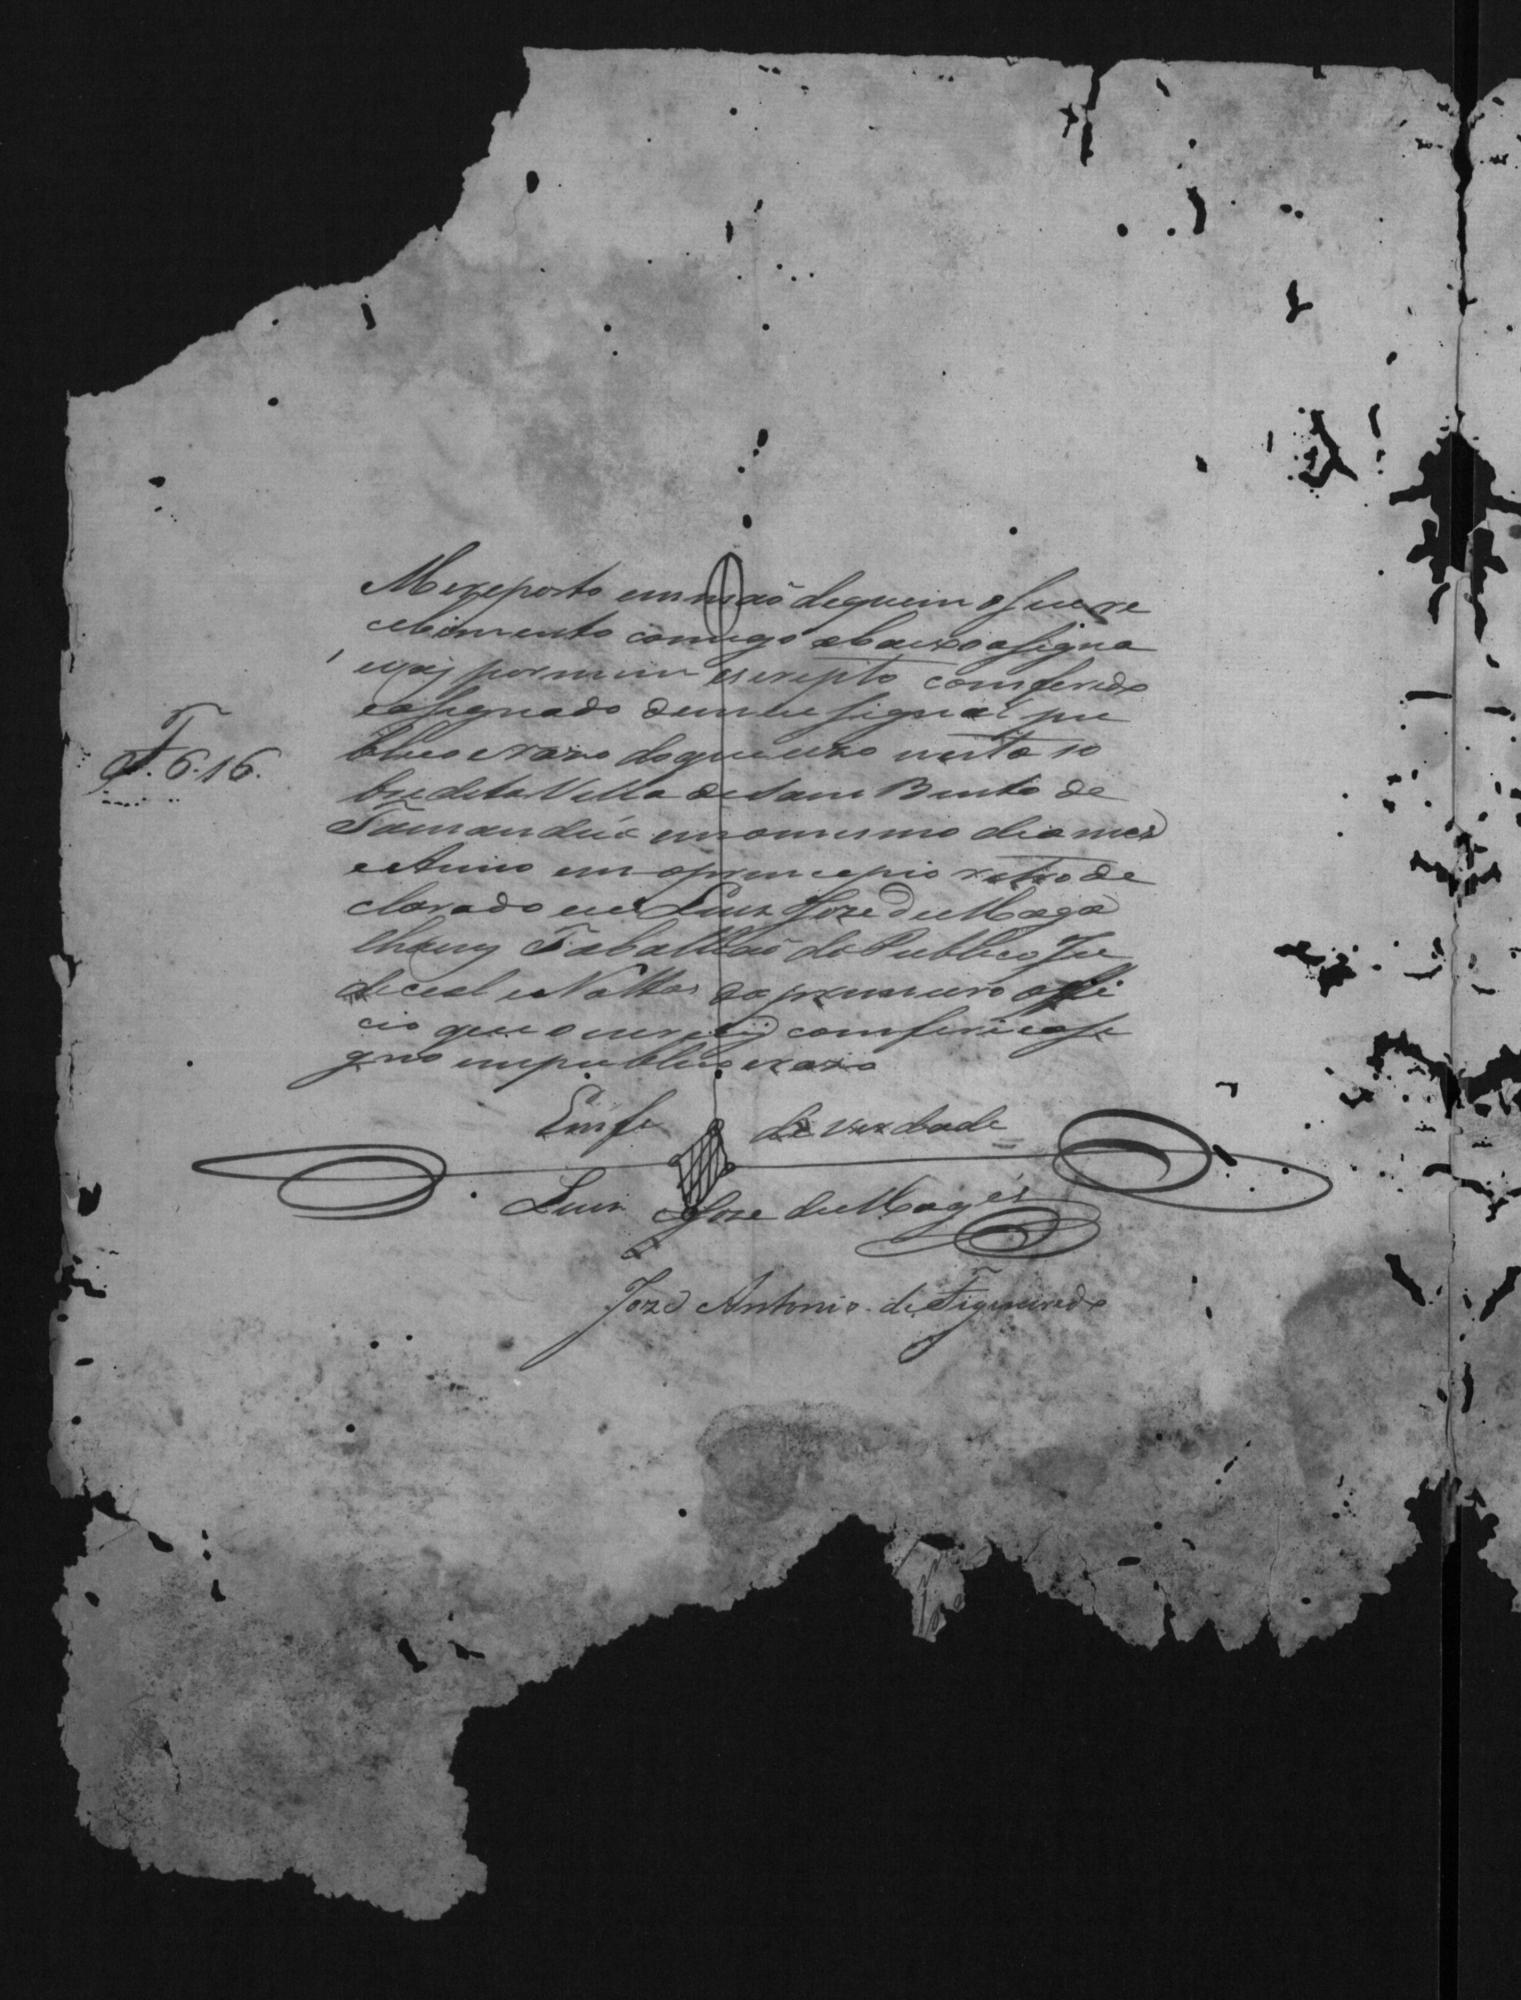 Mereporto em mão dequem o seu re
cebimento comigo abaixo asigna
por mim escripto comferido
easignado demeu signal pu
blico erazo doque uzo nesta so
bredita Villa de Sam Bento de
Tamanduá emomesmo dia mes
eAnno em oprincipio retro de
clarado eu Luiz Joze de Maga
lhaens Taballião do Publico Ju
dicial eNottas do primeiro offi
cio que o escrevy comferi easi
gno empublico erazo
Emfe de verdade
T. 6. 16.
Luiz Joze de Mages
Joze Antonio de Figueiredo